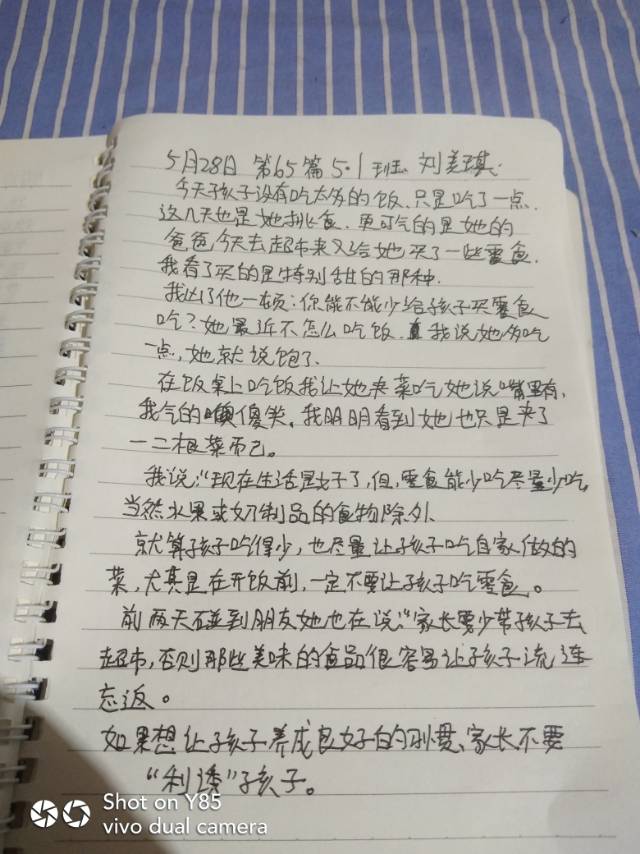 5月28日 第65篇 5.1班 刘美琪.
今天孩子没有吃太多的饭、只是吃了一点.
这几天也是她挑食. 更可气的是她的
爸爸,今天去超市来又给她买了一些零食.
我看了买的是特别甜的那种.
我凶了他一顿:你能不能少给孩子买零食
吃?她最近不怎么吃饭. 我说她多吃
一点,她就说饱了.
在饭桌上吃饭我让她夹菜吃她说嘴里有,
我气的傻笑。我明明看到她也只是夹了
一二根菜而己。
我说:“现在生活是好了,但,零食能少吃尽量少吃,
当然水果或奶制品的食物除外.
就算孩子吃得少,也尽量让孩子吃自家做的
菜,尤其是在开饭前,一定不要让孩子吃零食。
前两天碰到朋友她也在说:“家长要少带孩子去
超市,否则那些美味的食品很容易让孩子流连
忘返。
如果想让孩子养成良好的习惯、家长不要
“利诱”孩子。
Shot on Y85
vivo dual camera